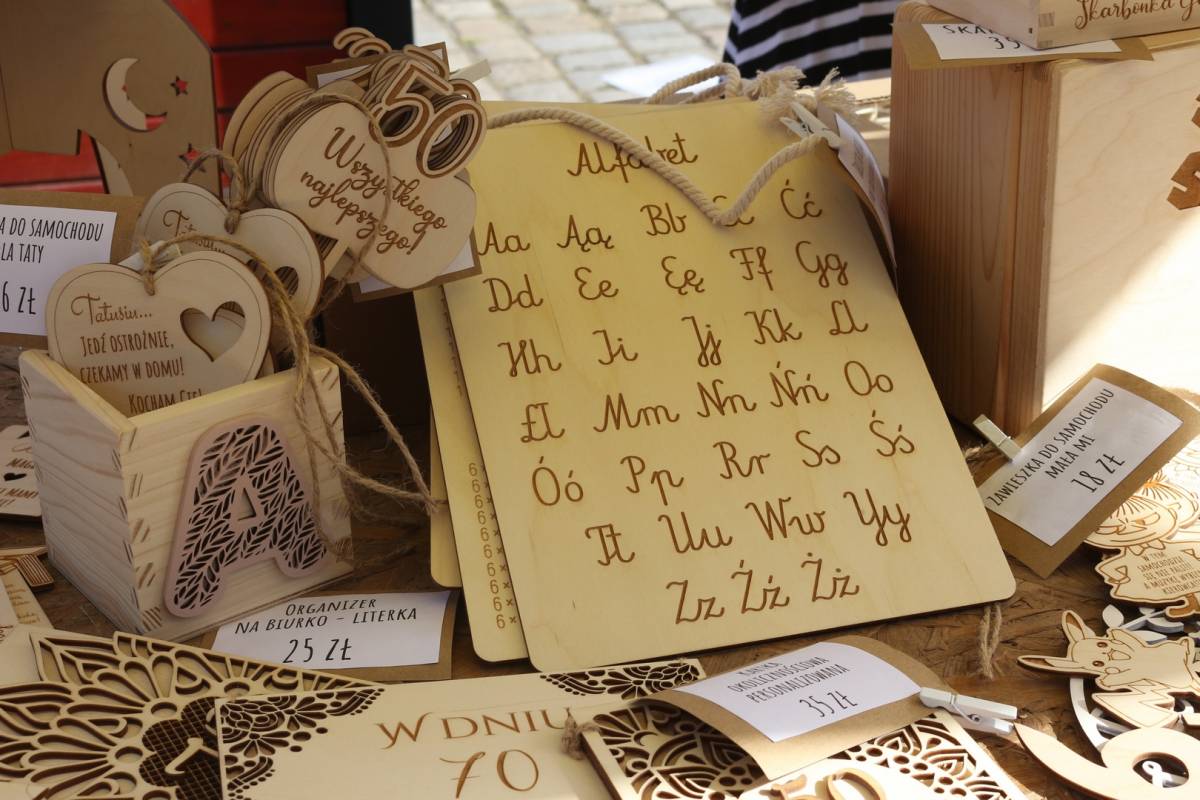 Skarbonka
SKAR
35
50
Wszystkiego
najlepszego!
A DO SAMOCHODU
DLA TATY
6 ZŁ
Tatusiu...
JEDŹ OSTROŻNIE,
CZEKAMY W DOMU!
KOCHAM CIĘ!
A
ORGANIZER
NA BIURKO - LITERKA
25 ZŁ
Alfabet
Aa Ąą Bb Cc Ćć
Dd Ee Ęę Ff Gg
Hh Ii Jj Kk Ll
Łł Mm Nn Ńń Oo
Óó Pp Rr Ss Śś
Tt Uu Ww Yy
Zz Źź Żż
6 ×
6 ×
6 ×
6 ×
6 ×
6 ×
6 ×
6 ×
6 ×
6 ×
ZAWIESZKA DO SAMOCHODU
MAŁA MI
18 ZŁ
KARTKA
OKOLICZNOŚCIOWA
PERSONALIZOWANA
35 ZŁ
W DNIU
70